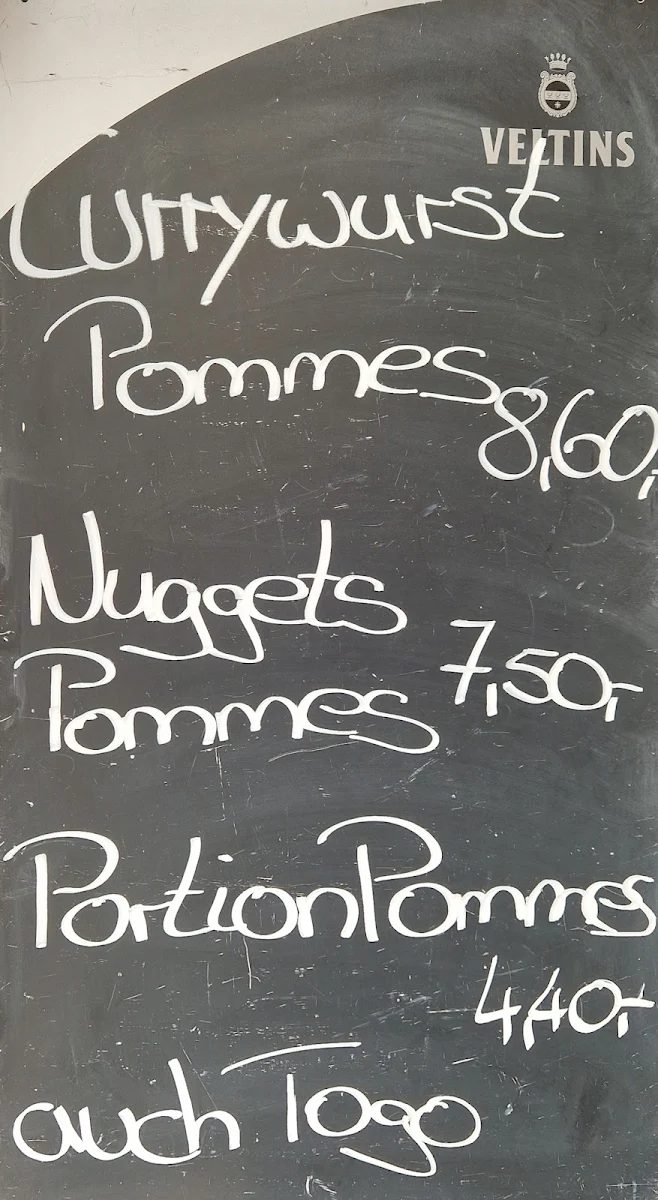 VELTINS
Currywurst
Pommes
8,60,-
Nuggets
Pommes 7,50,-
Portion Pommes
4,40,-
auch Togo